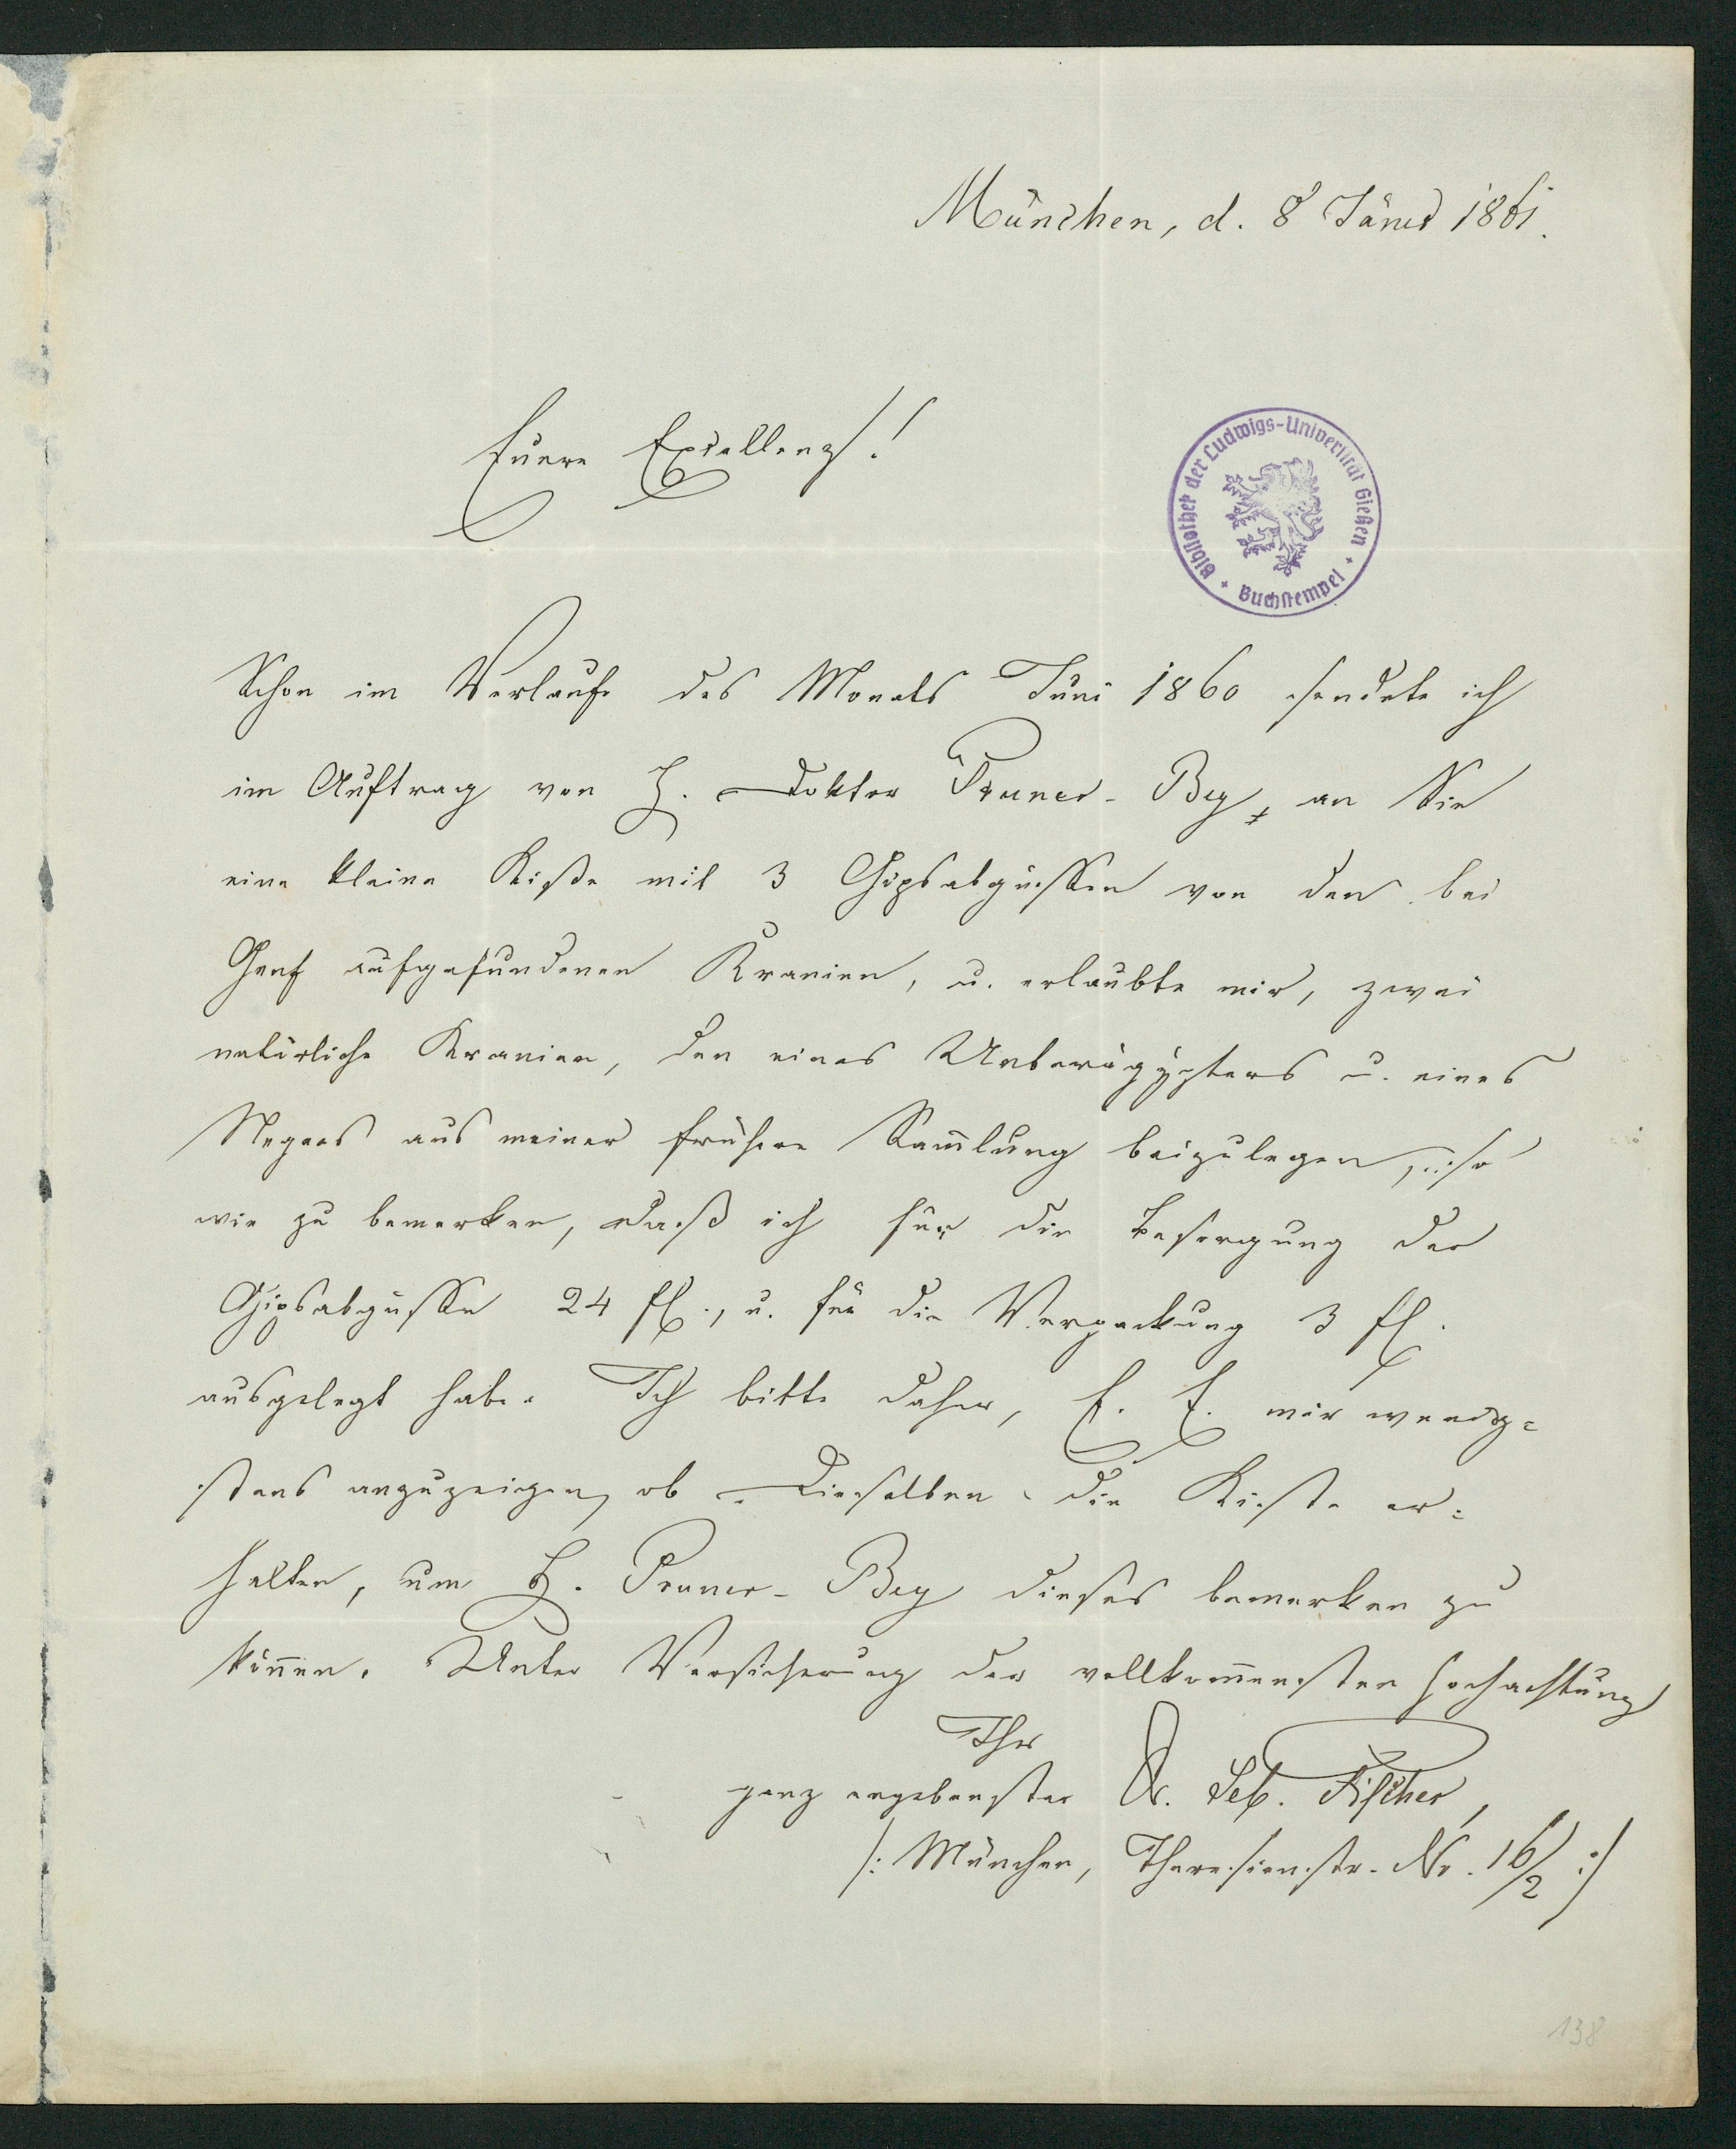 München, d. 8 Jäner 1861.
Euere Excellenz!
Bibliothek der Ludwigs-Universität Gießen
Buchstempel
Schon im Verlaufe des Monats Juni 1860 sendete ich
im Auftrag von H. Doktor Pruner-Bey, an Sie
eine kleine Kiste mit 3 Gipsabgüssen von den bei
Genf aufgefundenen Kranien, u. erlaubte mir, zwei
natürliche Kranien, den eines Ueberägypters u. eines
Negers aus meiner frühern Sam̅lung beizulegen, so
wie zu bemerken, daß ich für die Besorgung der
Gipsabgüsse 24 fl., u. für die Verpackung 3 fl.
ausgelegt habe. Ich bitte daher, E. E. mir wenig=
stens anzuzeigen, ob Dieselben die Kiste er=
halten, um H. Pruner-Bey dieses bemerken zu
kön̅en. Unter Versicherung der vollkom̅ensten Hochachtung
Ihr
ganz ergebenster Dr. Seb. Fischer,
/: München, Theresienstr. Nr. 16/2 :/
138